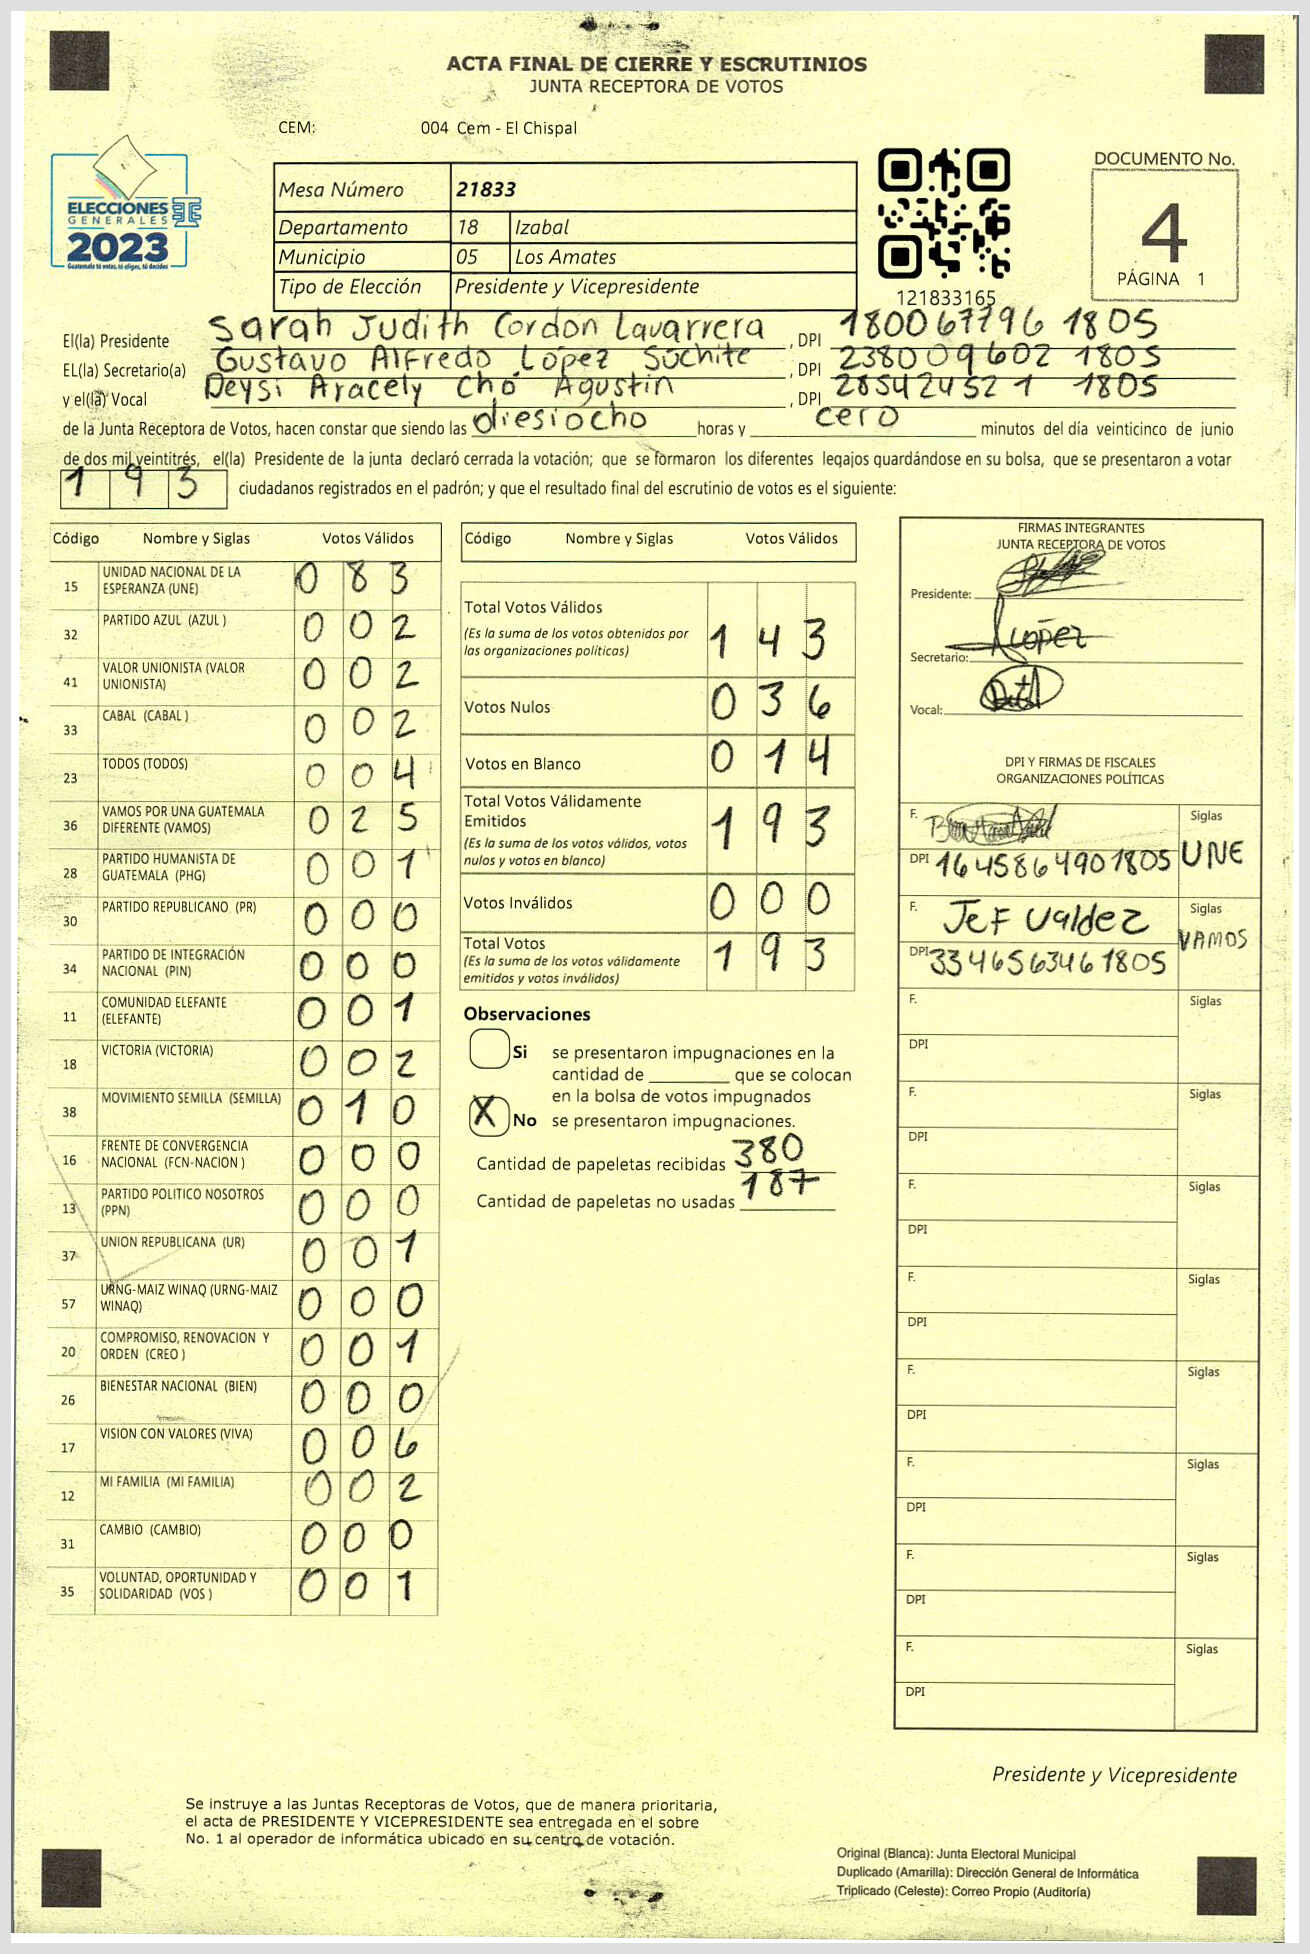 ACTA FINAL DE CIERRE Y ESCRUTINIOS
JUNTA RECEPTORA DE VOTOS
CEM: 004 Cem - El Chispal
ELECCIONES
GENERALES
2023
Guatemala tú votas, tú eliges, tú decides
Mesa Número 21833
Departamento 18 Izabal
Municipio 05 Los Amates
Tipo de Elección Presidente y Vicepresidente
121833165
DOCUMENTO No.
4
PÁGINA 1
El(la) Presidente Sarah Judith Cordon Lavarrera, DPI 180067796 1805
EL(la) Secretario(a) Gustavo Alfredo López Súchite, DPI 238009602 1805
y el(la) Vocal Deysi Aracely Chó Agustin, DPI 285424521 1805
de la Junta Receptora de Votos, hacen constar que siendo las diesiocho horas y cero minutos del día veinticinco de junio
de dos mil veintitrés, el(la) Presidente de la junta declaró cerrada la votación; que se formaron los diferentes legajos guardándose en su bolsa, que se presentaron a votar
193 ciudadanos registrados en el padrón; y que el resultado final del escrutinio de votos es el siguiente:
Código Nombre y Siglas Votos Válidos
15 UNIDAD NACIONAL DE LA ESPERANZA (UNE) 083
32 PARTIDO AZUL (AZUL ) 002
41 VALOR UNIONISTA (VALOR UNIONISTA) 002
33 CABAL (CABAL ) 002
23 TODOS (TODOS) 004
36 VAMOS POR UNA GUATEMALA DIFERENTE (VAMOS) 025
28 PARTIDO HUMANISTA DE GUATEMALA (PHG) 001
30 PARTIDO REPUBLICANO (PR) 000
34 PARTIDO DE INTEGRACIÓN NACIONAL (PIN) 000
11 COMUNIDAD ELEFANTE (ELEFANTE) 001
18 VICTORIA (VICTORIA) 002
38 MOVIMIENTO SEMILLA (SEMILLA) 010
16 FRENTE DE CONVERGENCIA NACIONAL (FCN-NACION ) 000
13 PARTIDO POLITICO NOSOTROS (PPN) 000
37 UNION REPUBLICANA (UR) 001
57 URNG-MAIZ WINAQ (URNG-MAIZ WINAQ) 000
20 COMPROMISO, RENOVACION Y ORDEN (CREO ) 001
26 BIENESTAR NACIONAL (BIEN) 000
17 VISION CON VALORES (VIVA) 006
12 MI FAMILIA (MI FAMILIA) 002
31 CAMBIO (CAMBIO) 000
35 VOLUNTAD, OPORTUNIDAD Y SOLIDARIDAD (VOS ) 001
Código Nombre y Siglas Votos Válidos
Total Votos Válidos 143
(Es la suma de los votos obtenidos por
las organizaciones políticas)
Votos Nulos 036
Votos en Blanco 014
Total Votos Válidamente
Emitidos 193
(Es la suma de los votos válidos, votos
nulos y votos en blanco)
Votos Inválidos 000
Total Votos 193
(Es la suma de los votos válidamente
emitidos y votos inválidos)
Observaciones
Si se presentaron impugnaciones en la
cantidad de ________ que se colocan
en la bolsa de votos impugnados
X No se presentaron impugnaciones.
Cantidad de papeletas recibidas 380
Cantidad de papeletas no usadas 187
FIRMAS INTEGRANTES
JUNTA RECEPTORA DE VOTOS
Presidente:
Secretario: López
Vocal:
DPI Y FIRMAS DE FISCALES
ORGANIZACIONES POLÍTICAS
F. Siglas
DPI 1645864901805 UNE
F. Jef Valdez Siglas
DPI 3346563461805 VAMOS
F. Siglas
DPI
F. Siglas
DPI
F. Siglas
DPI
F. Siglas
DPI
F. Siglas
DPI
F. Siglas
DPI
F. Siglas
DPI
F. Siglas
DPI
Presidente y Vicepresidente
Se instruye a las Juntas Receptoras de Votos, que de manera prioritaria,
el acta de PRESIDENTE Y VICEPRESIDENTE sea entregada en el sobre
No. 1 al operador de informática ubicado en su centro de votación.
Original (Blanca): Junta Electoral Municipal
Duplicado (Amarilla): Dirección General de Informática
Triplicado (Celeste): Correo Propio (Auditoría)